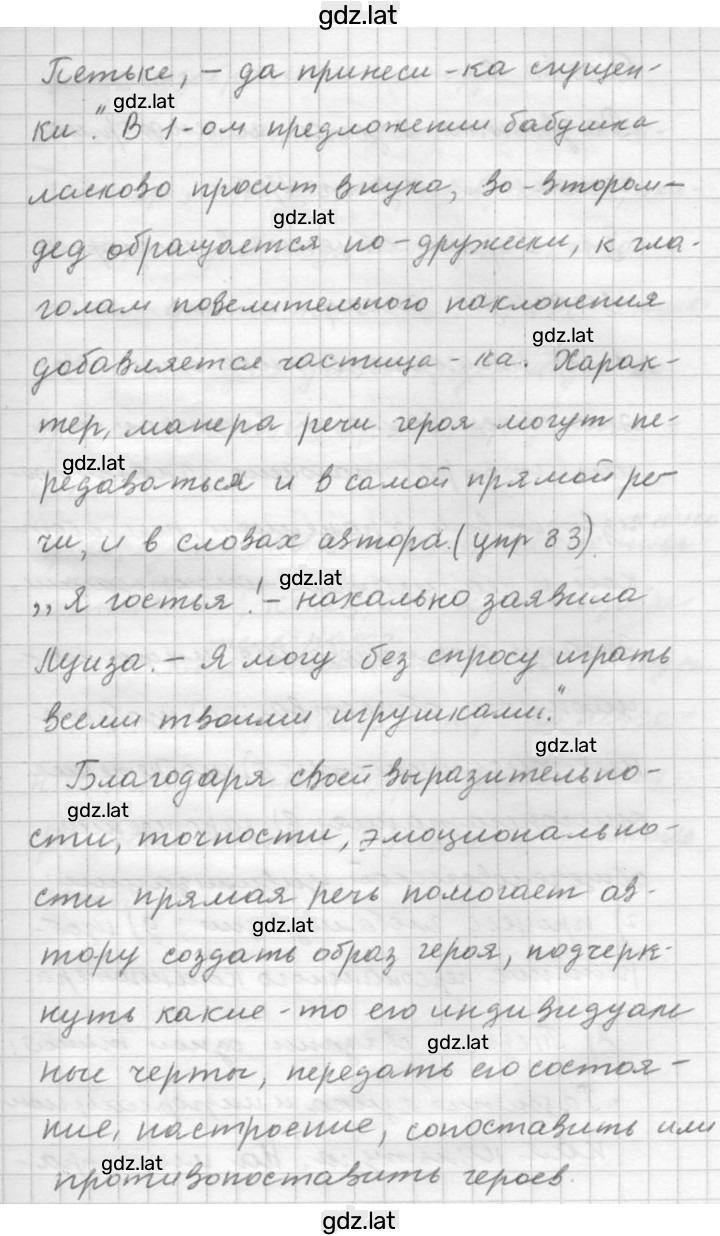 gdz.lat
Петьке, – да принеси -ка сгущен-
gdz.lat
ки". В 1-ом предложении бабушка
ласково просит внука, во-втором–
gdz.lat
дед обращается по-дружески, к гла-
голам повелительного наклонения
gdz.lat
добавляется частица -ка. Харак-
тер, манера речи героя могут пе-
gdz.lat
редаваться и в самой прямой ре-
чи, и в словах автора.(упр 83).
gdz.lat
„Я гостья! – нахально заявила
Луиза. – Я могу без спросу играть
всеми твоими игрушками."
gdz.lat
Благодаря своей выразительно-
gdz.lat
сти, точности, эмоционально-
сти прямая речь помогает ав-
gdz.lat
тору создать образ героя, подчерк-
нуть какие-то его индивидуаль
gdz.lat
ные черты, передать его состоя-
ние, настроение, сопоставить или
gdz.lat
противопоставить героев.
gdz.lat